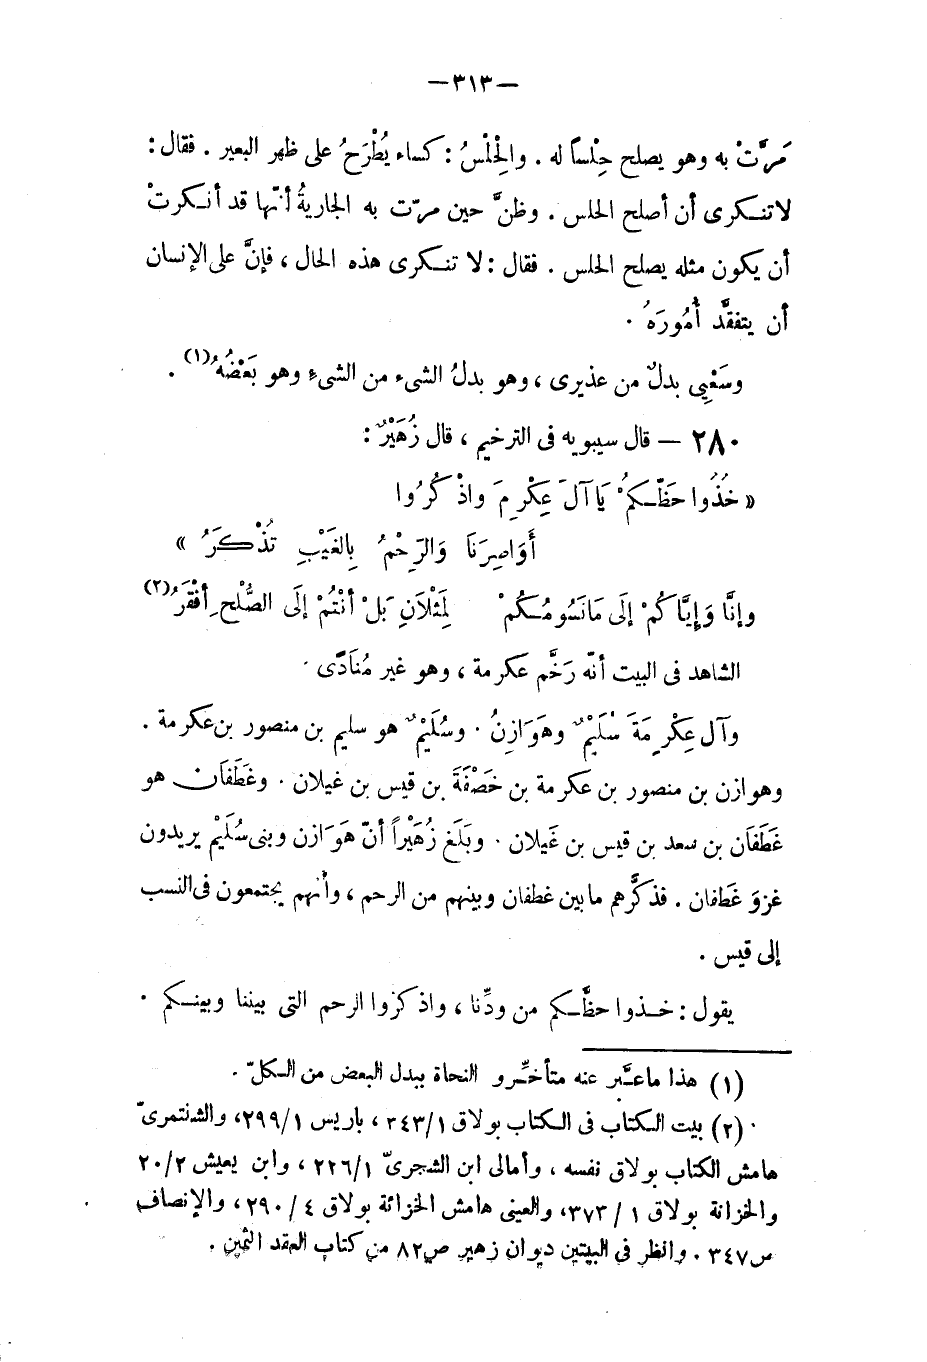 —٣١٣—
مَرَّتْ به وهو يصلح حِلْساً له . والحِلْسُ : كساء يُطْرَحُ على ظهر البعير . فقال :
لا تنكرى أن أصلح الحلس . وظنَّ حين مرّت به الجاريةُ أنّها قد أنكرتْ
أن يكون مثله يصلح الحلس . فقال : لا تنكرى هذه الحال ، فإنَّ على الإنسان
أن يتفقَّد أُمُورَهُ .
وسَعْيِى بدلٌ من عذيرى ، وهو بدلُ الشىء من الشىءِ وهو بَعْضُهُ(١) .
٢٨٠ — قال سيبويه فى الترخيم ، قال زُهَيْرٌ :
« خُذُوا حَظَّكمُ يَا آلَ عِكْرِمَ واذْكُرُوا
أَوَاصِرَنَا وَالرَّحِمُ بِالغَيْبِ تُذْكَرُ »
وإنَّا وَإِيَّاكُمْ إلَى مَا نَسُومُكمْ لَمِثْلاَنِ بَلْ أنْتُمْ إلَى الصُّلْحِ أفْقَرُ(٢)
الشاهد فى البيت أنّه رَخَّم عكرمة ، وهو غير مُنَادًى .
وآل عِكْرِمَةَ سُلَيْمٌ وهَوَازِنُ . وسُلَيْمٌ هو سليم بن منصور بن عكرمة .
وهوازن بن منصور بن عكرمة بن خَصْفَةَ بن قيس بن غيلان . وغَطَفَان هو
غَطَفَان بن سعد بن قيس بن غَيلان . وبَلَغ زُهَيْراً أنّ هَوَازن وبنى سُلَيْم يريدون
غزوَ غَطَفان . فذكَّرهم ما بين غطفان وبينهم من الرحم ، وأنهم يجتمعون فى النسب
إلى قيس .
يقول : خذوا حظَّكم من ودِّنا ، واذكروا الرحم التى بيننا وبينكم .
(١) هذا ما عبَّر عنه متأخِّرو النحاة ببدل البعض من الكلّ .
(٢) بيت الكتاب فى الكتاب بولاق ٣٤٣/١ ، باريس ٢٩٩/١، والشنتمرىّ
هامش الكتاب بولاق نفسه ، وأمالى ابن الشجرىّ ٢٢٦/١ ، وابن يعيش ٢٠/٢
والخزانة بولاق ١ / ٣٧٣، والعينى هامش الخزائة بولاق ٤ / ٢٩٠ ، والإنصاف
ص٣٤٧ . وانظر فى البيتين ديوان زهير ص٨٢ من كتاب العقد الثمين .